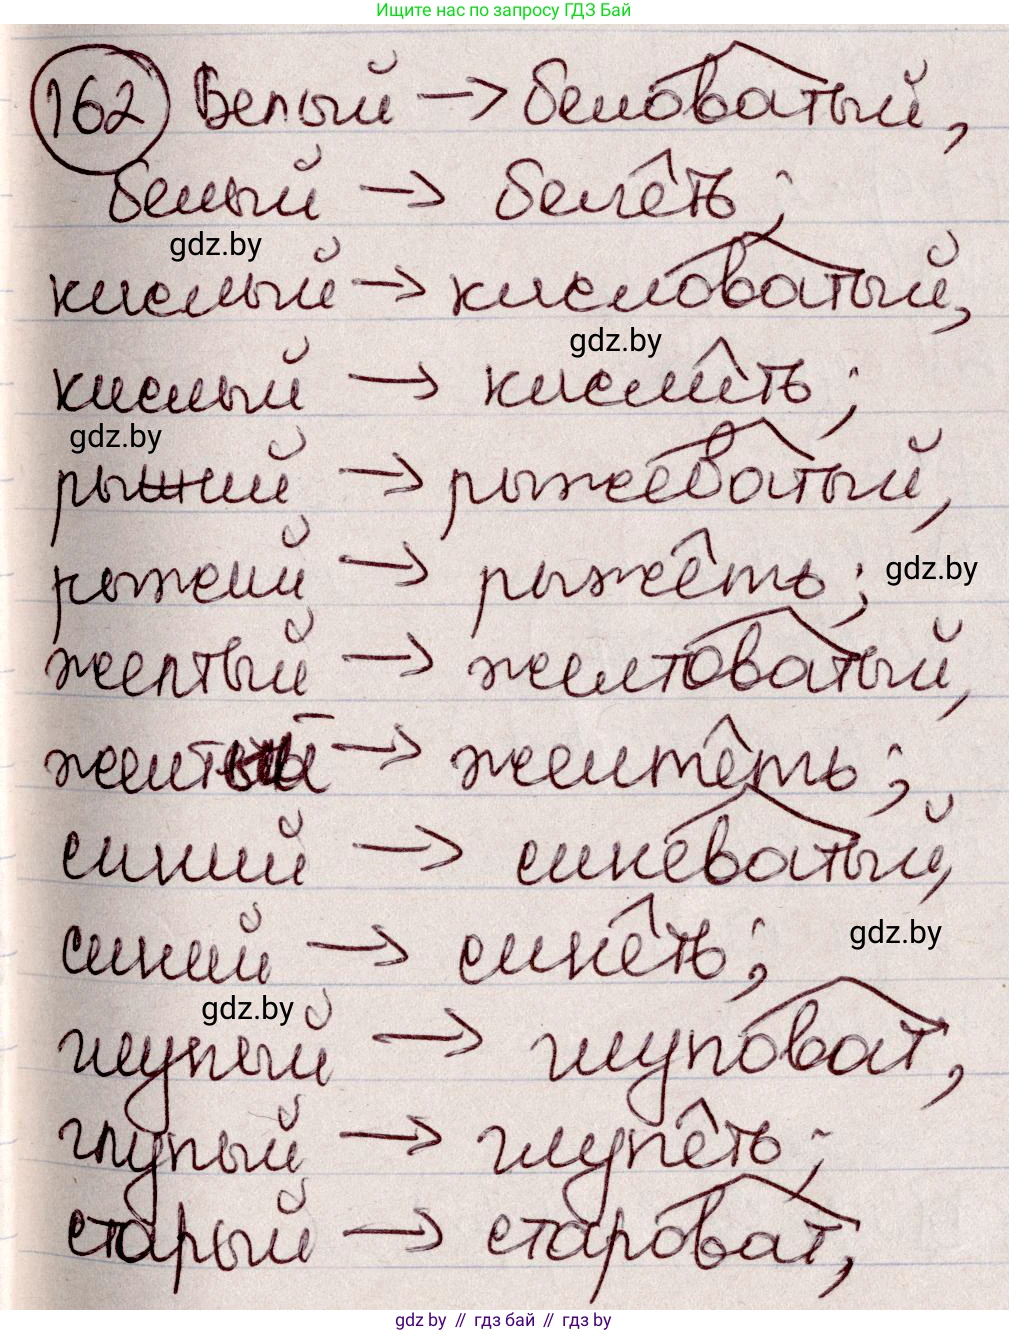 Ищите нас по запросу ГДЗ Бай
162 Белый → беловатый,
белый → белеть;
gdz.by
кислый → кисловатый,
gdz.by
кислый → кислить;
gdz.by
рыжий → рыжеватый,
рыжий → рыжеть;
gdz.by
желтый → желтоватый,
желтый → желтеть;
синий → синеватый,
синий → синеть;
gdz.by
gdz.by
глупый → глуповат,
глупый → глупеть;
старый → староват,
gdz.by // гдз бай // gdz.by